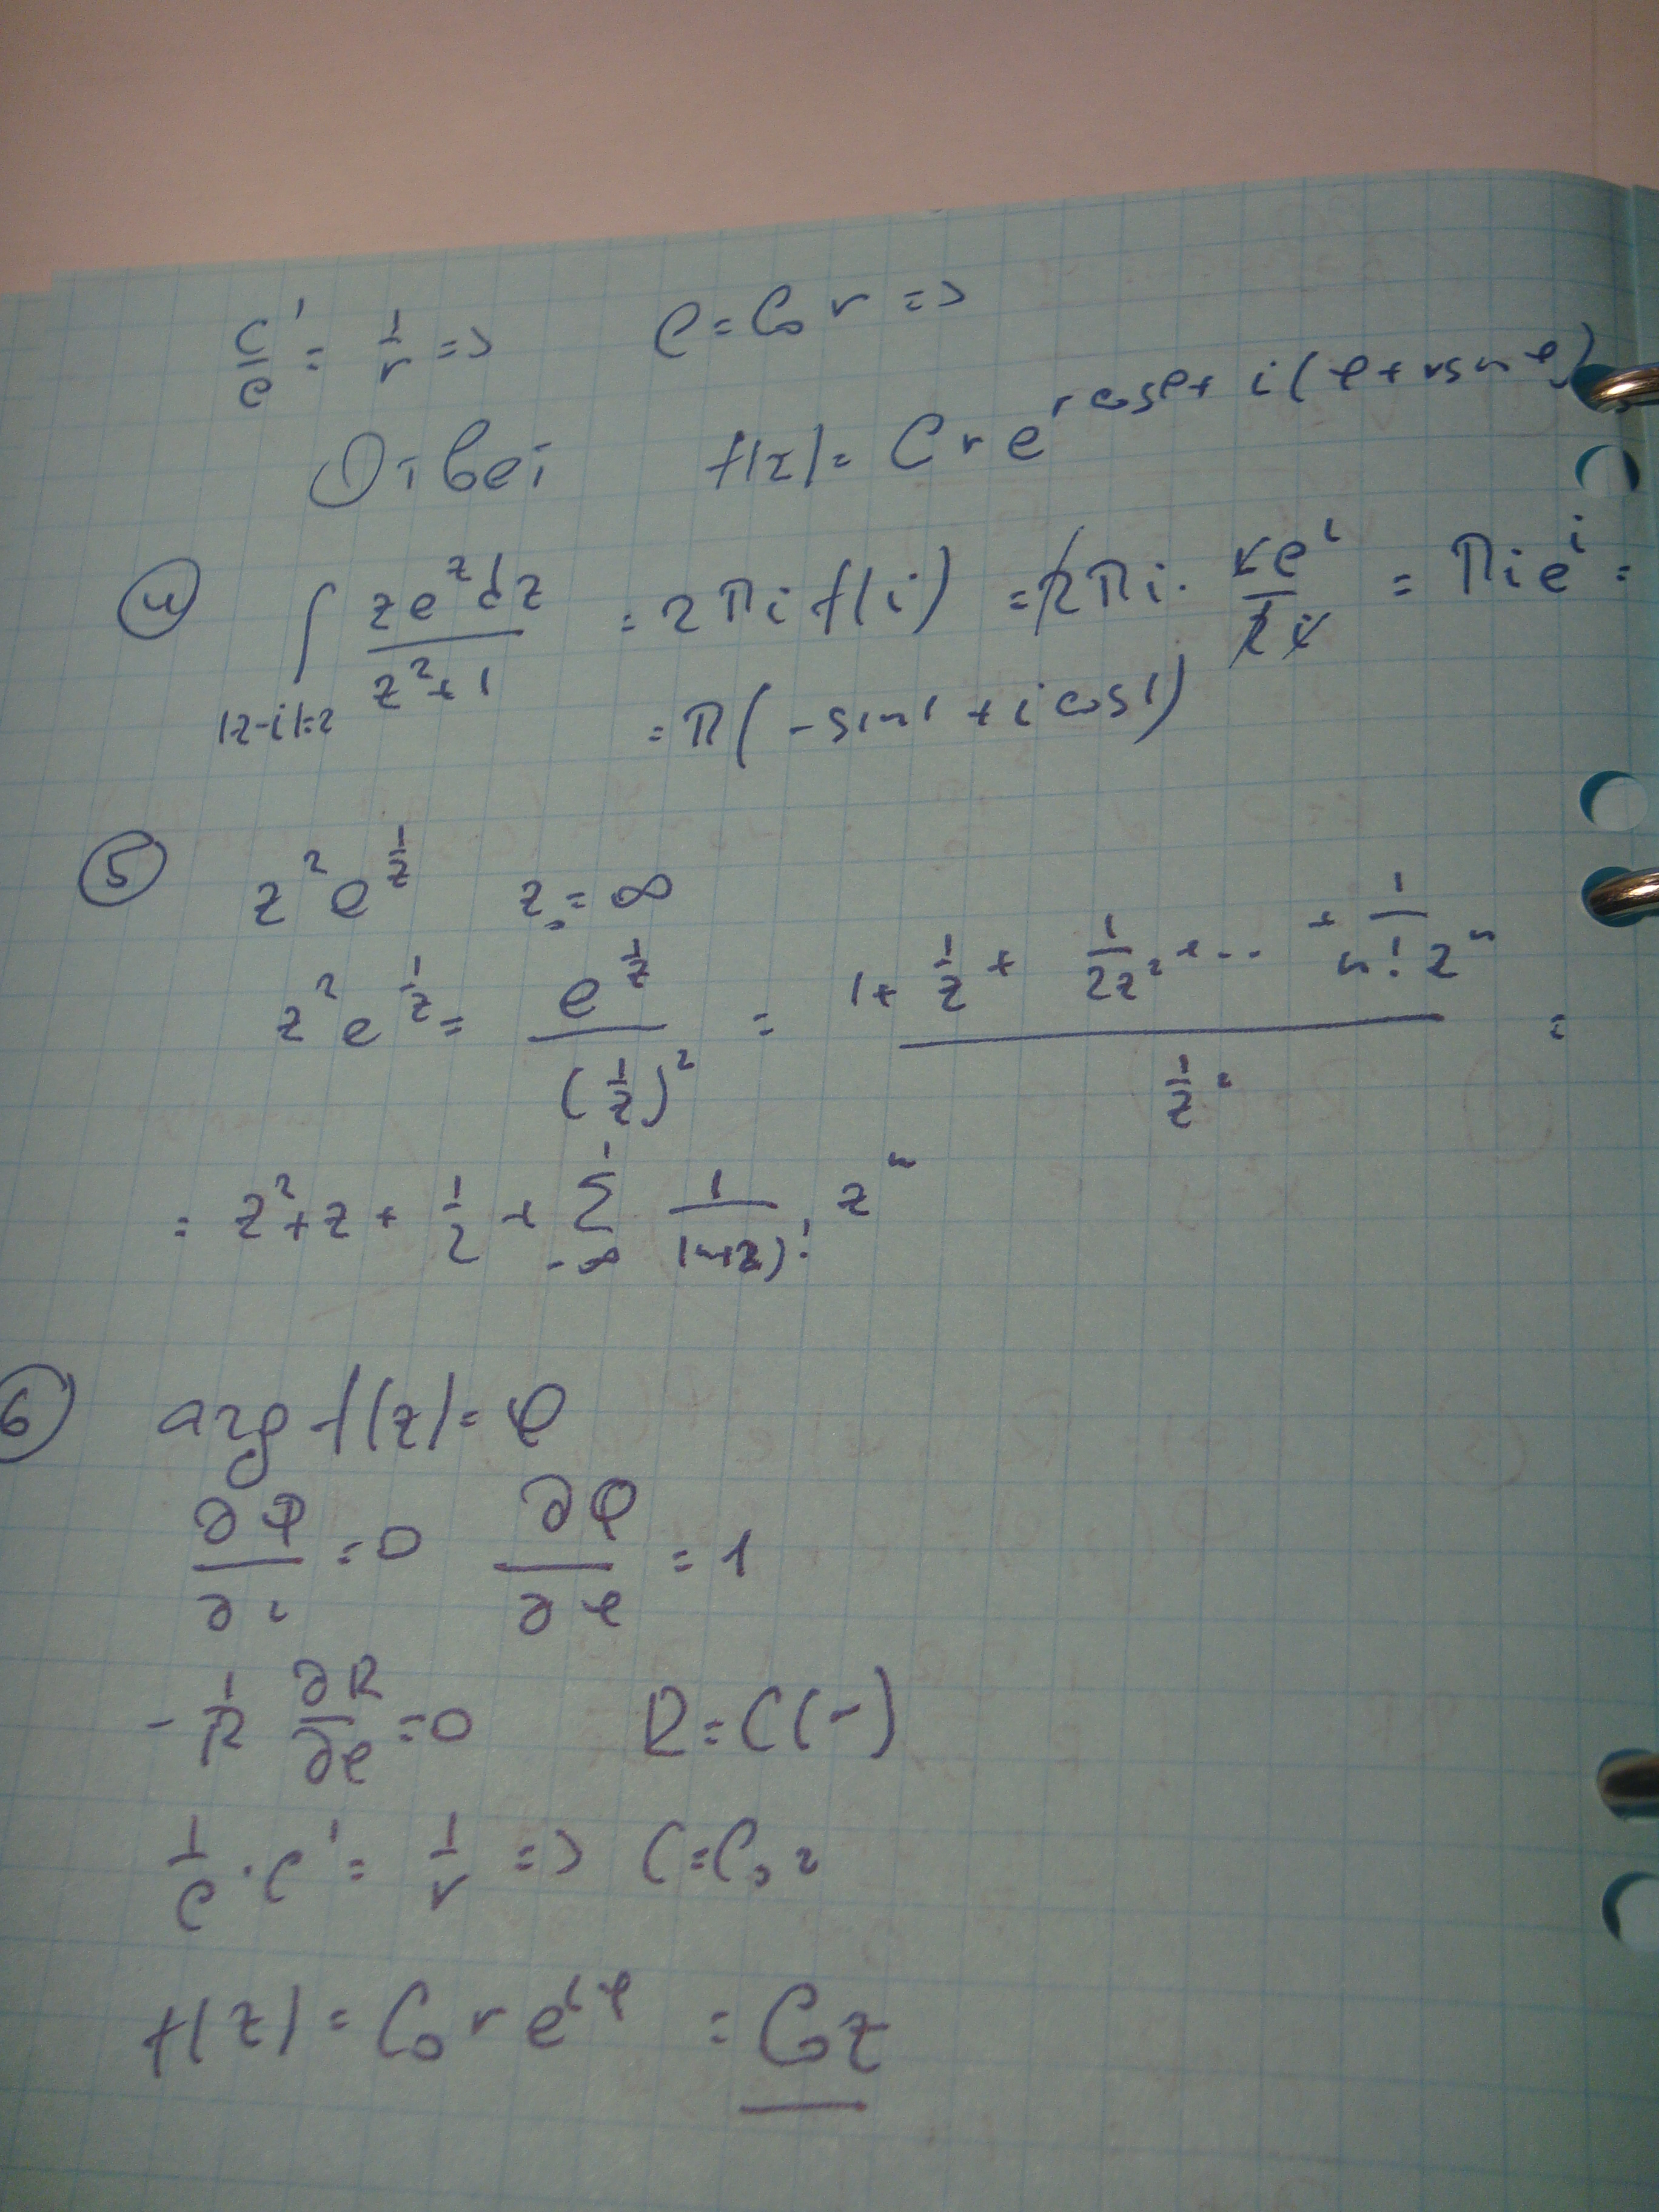 C'/C = 1/r => C = C₀ r =>
Ответ f(z) = C r e^(r cosφ + i(φ + r sinφ))
④ ∫ ze^z dz / (z²+1) = 2πi f(i) = 2πi · ie^i / 2i = πi e^i =
|z-i|=2 = π(-sin1 + i cos1)
⑤ z² e^(1/z) z₀ = ∞
z² e^(1/z) = e^(1/z) / (1/z)² = (1 + 1/z + 1/2z² + ... + 1/(n! z^n)) / (1/z²) =
= z² + z + 1/2 + Σ_(-∞)^1 1/(n+2)! z^n
⑥ arg f(z) = φ
∂Φ/∂r = 0 ∂Φ/∂φ = 1
- 1/R ∂R/∂φ = 0 R = C(r)
1/C · C' = 1/r => C = C₀ r
f(z) = C₀ r e^(iφ) = C₀z